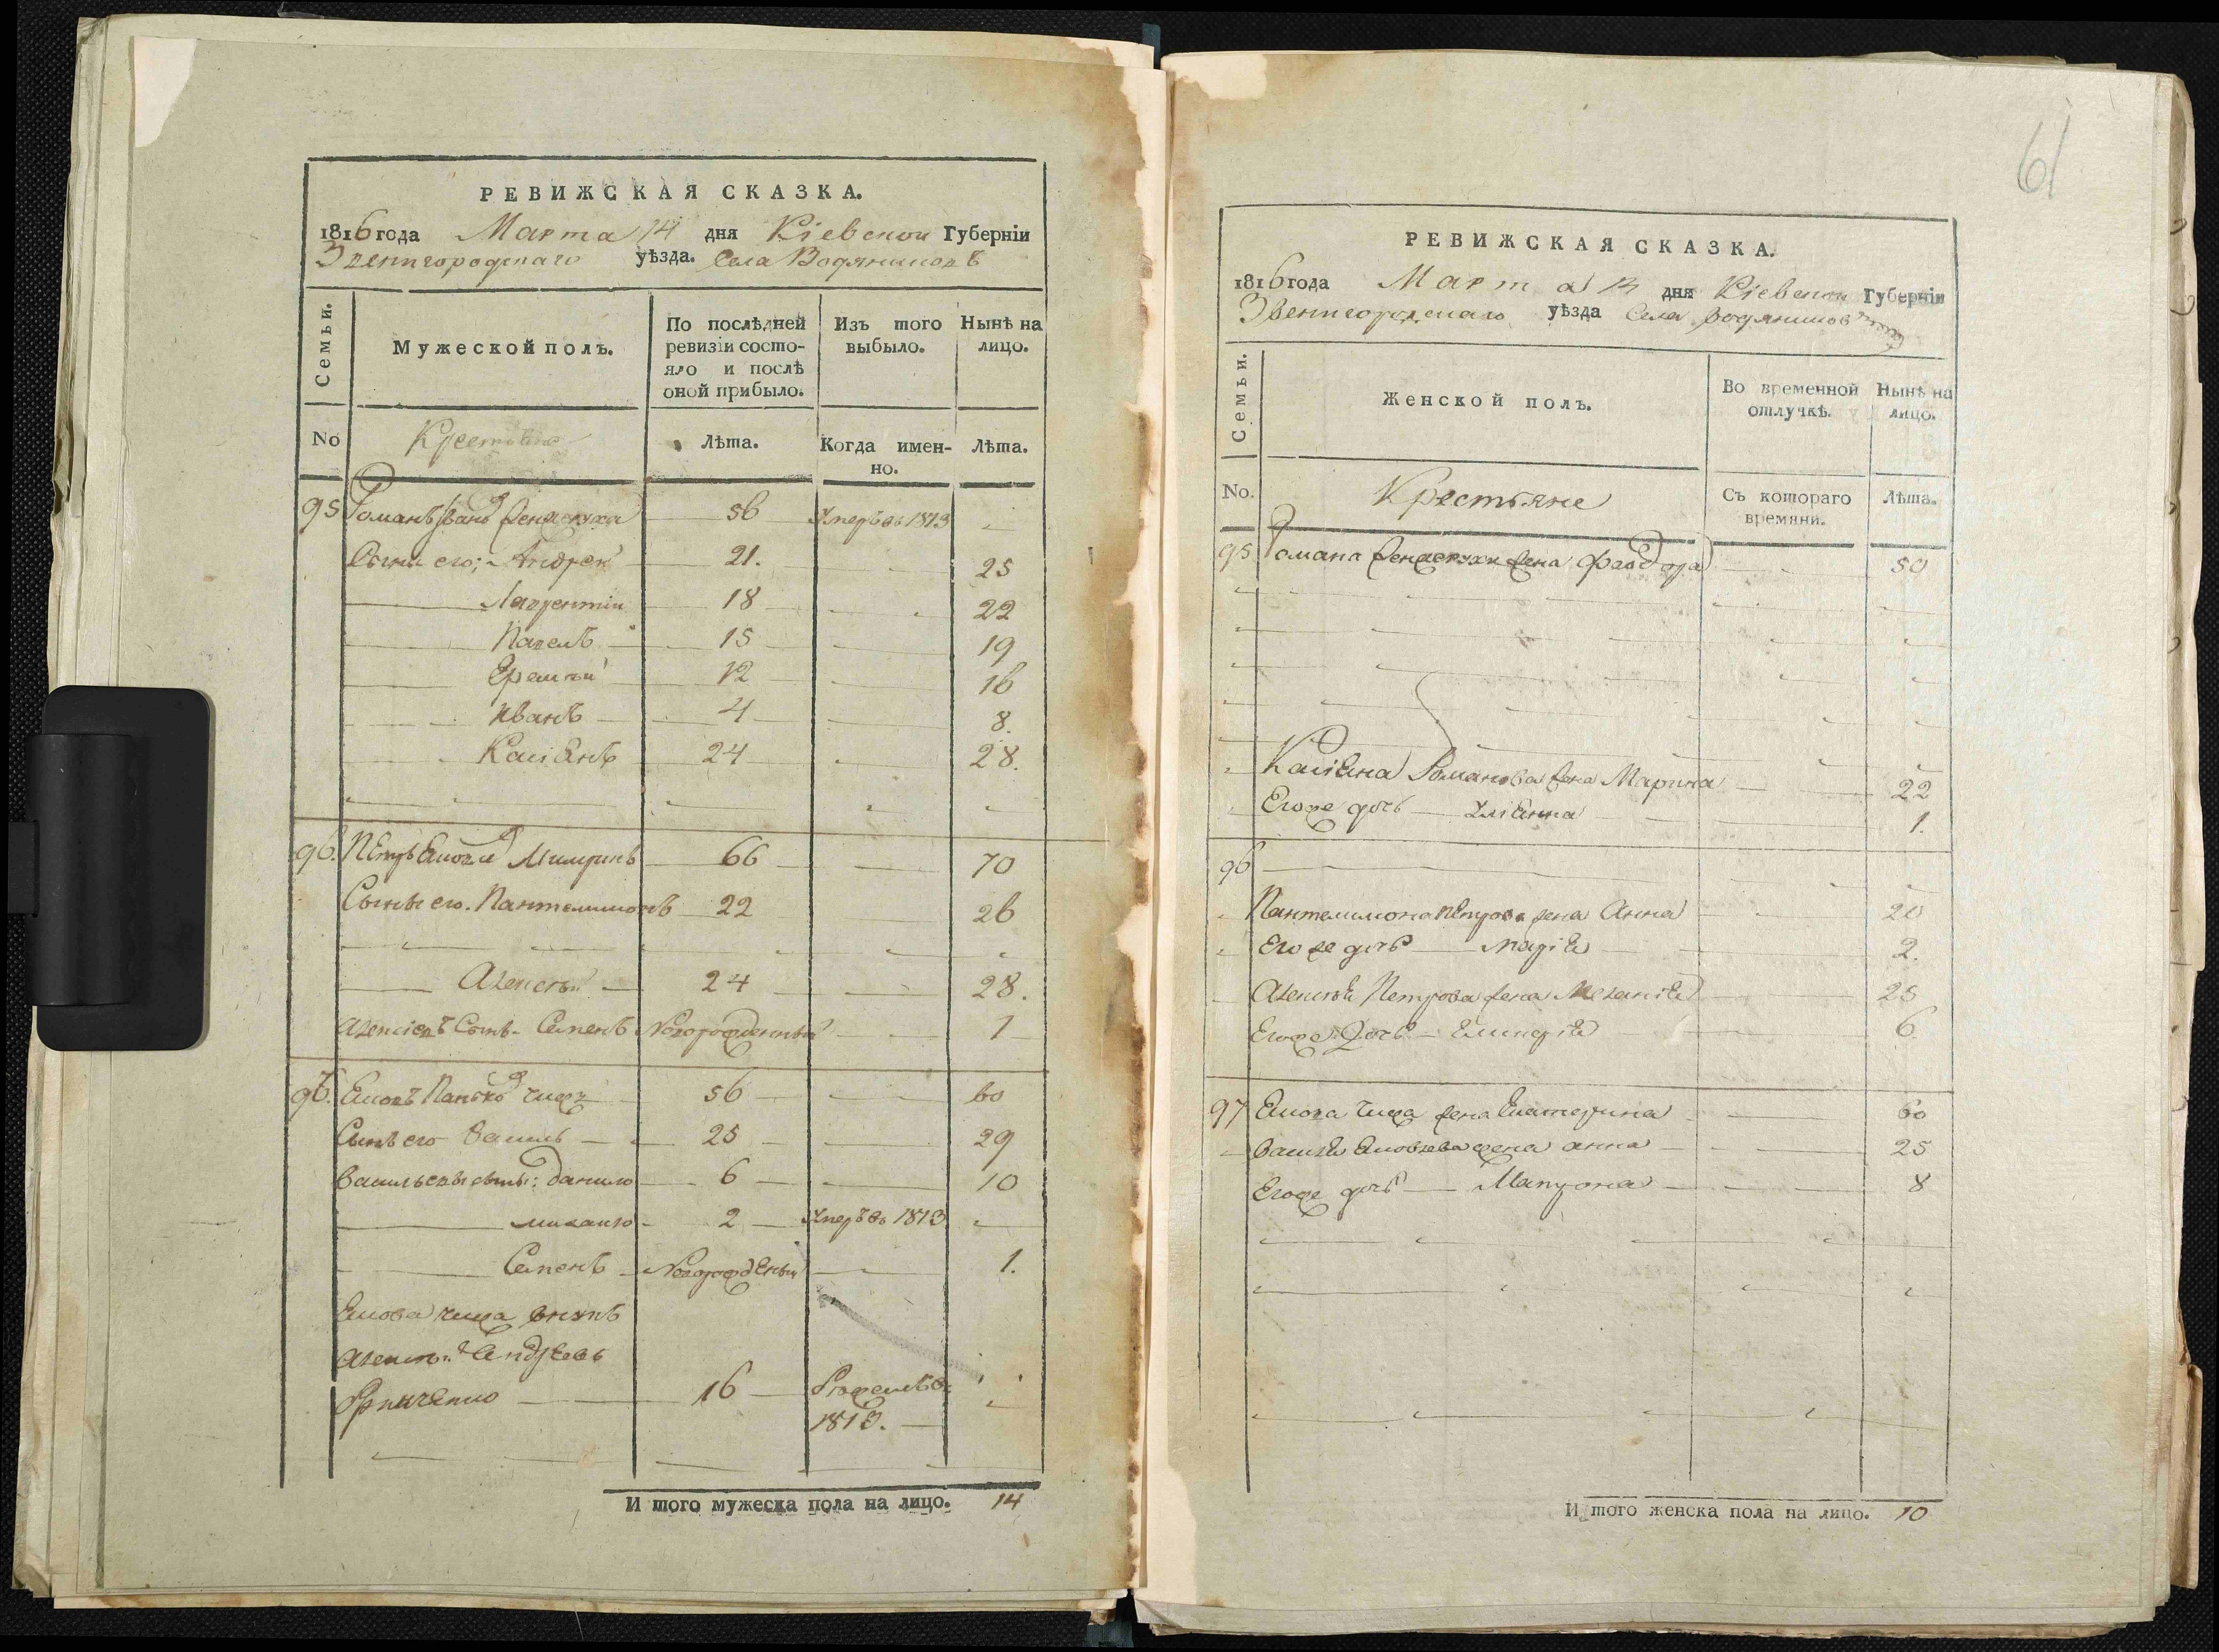 61
РЕВИЖСКАЯ СКАЗКА.
1816 года Марта 14 дня Кіевской Губерніи
Звенигородскаго уѣзда. Села Водяниковъ
Семьи.
Мужеской полъ.
По послѣдней ревизіи состо-
яло и послѣ оной прибыло.
Изъ того выбыло.
Нынѣ на лицо.
No
Крестьяне
Лѣта.
Когда имен-
но.
Лѣта.
95 Романъ Иванъ 56 Умеръ въ 1813
Сыны его: Андрей 21. 25
Лаврентій 18 22
Павелъ 15 19
Еремѣй 12 16
Иванъ 4 8.
Касіянъ 24 28.
96. Петръ 66 70
Сыны его. Пантелимонъ 22 26
Алексѣй 24 28.
Алексіевъ Сынъ Семенъ Новорожденный 1
96. Яковъ Панько Чижъ 56 60
Сынъ его Василь 25 29
Васильевы сыны: Данило 6 10
Михайло 2 Умеръ въ 1813
Семенъ Новорожденый 1.
Якова Чижа внукъ
Алексѣй Андреевъ
16
1813.
И того мужеска пола на лицо. 14
РЕВИЖСКАЯ СКАЗКА.
1816 года Марта 14 дня Кіевской Губерніи
Звенигородскаго уѣзда Села Водяниковъ
Семьи.
Женской полъ.
Во временной отлучкѣ.
Нынѣ на лицо.
No.
Крестьяне
Съ котораго времяни.
Лѣта.
95 Романа жена Феодора 50
Касіяна Романова жена Марина 22
Егоже дочь Уліянна 1.
96
Пантелимона Петрова жена Анна 20
Егоже дочь Марія 2.
Алексѣя Петрова жена Меланія 25
Егоже дочь 6
97 Якова Чижа жена Екатерина 60
Василя Яковлева жена Анна 25
Егоже дочь Матрона 8
И того женска пола на лицо. 10